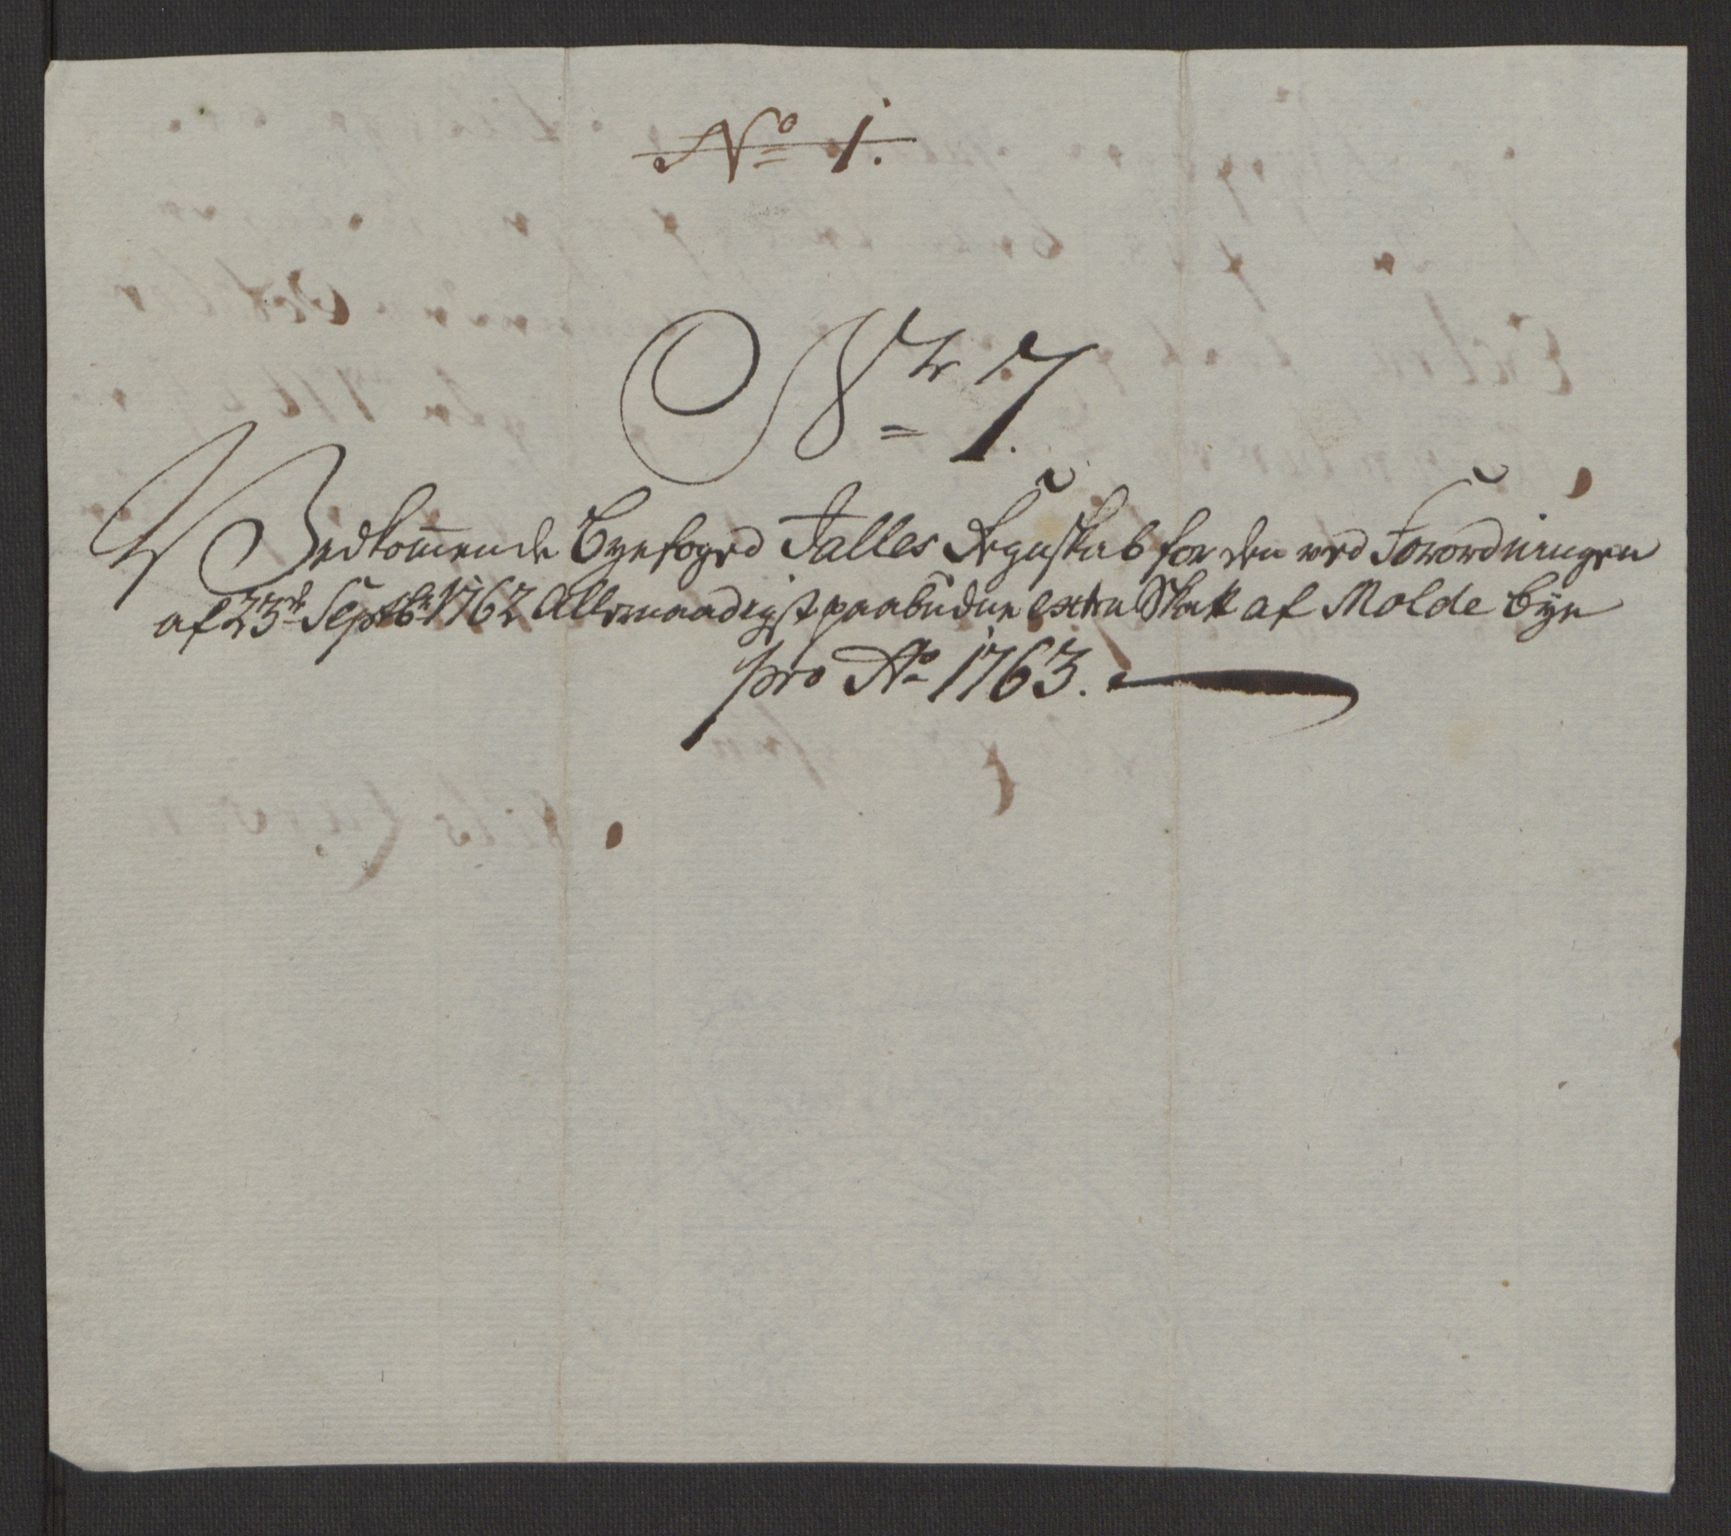 No 1.
Nr 7.
Vedkom̅ende Byefoged Falles Reguskab for den ved Forordningen
af 23d Septbr 1762 Allernaadigst paabudne extra Skatt af Molde bye
pro Ao 1763.